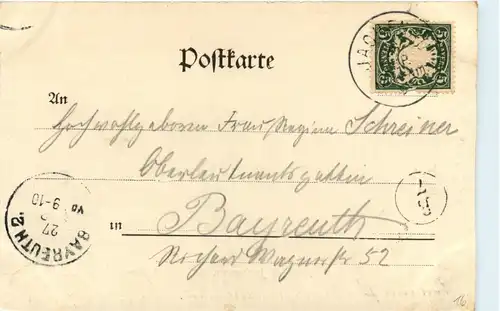 Postkarte
JACH
An
Hochwohlgeboren Frau Regina Schreiner
Oberleutnantsgattin
in Bayreuth
Richard Wagnerstr 52
BAYREUTH 2.
27
Vo 9-10
16